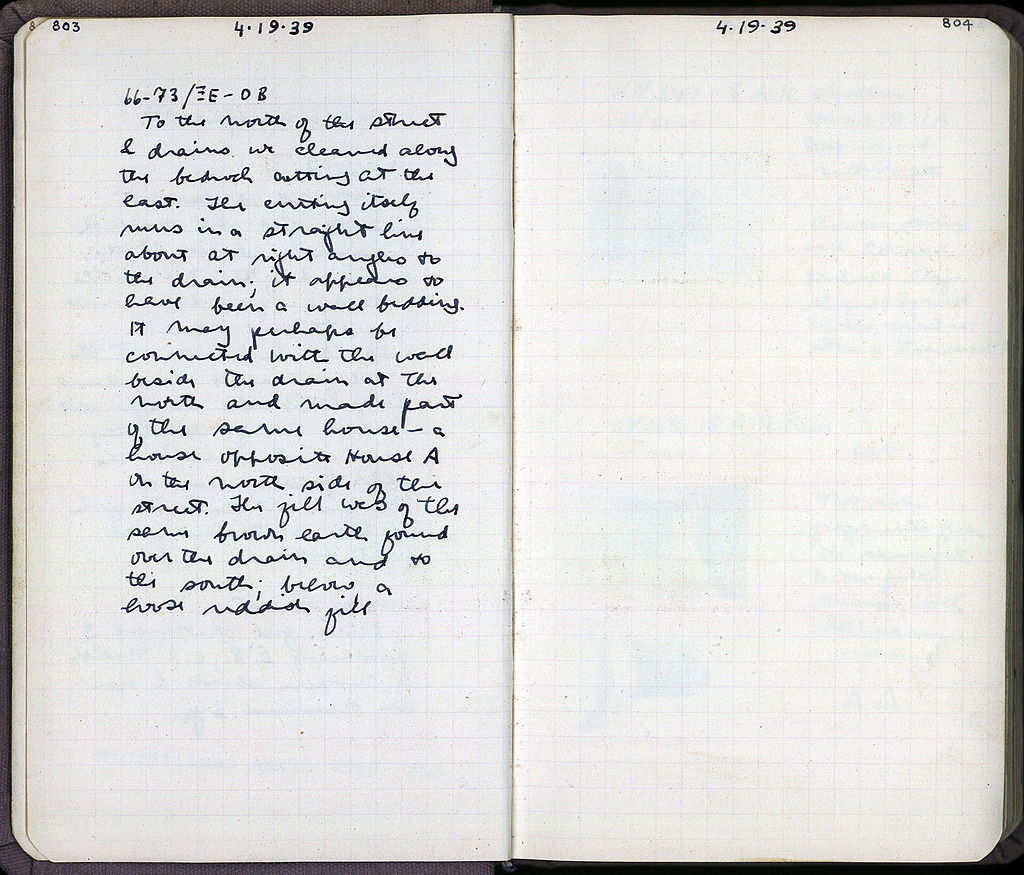 803
4·19·39
66-73/ΞE-OB
To the north of the street
& drains we cleaned along
the bedrock cutting at the
east. The cutting itself
runs in a straight line
about at right angles to
the drain; it appears to
have been a wall bedding.
It may perhaps be
connected with the wall
beside the drain at the
north and made part
of the same house — a
house opposite House A
on the north side of the
street. The fill was of the
same brown earth found
over the drain and to
the south; below, a
loose reddish fill
4·19·39
804